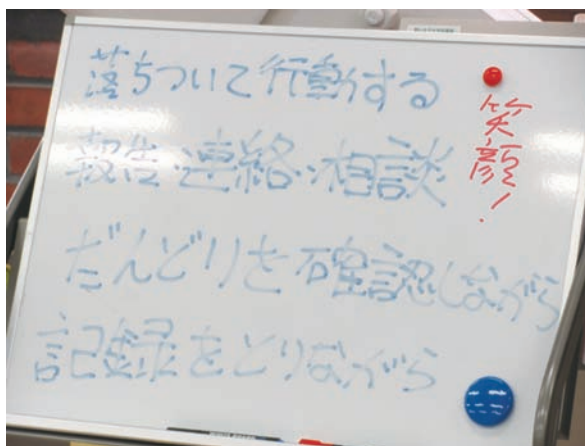 落ちついて行動する
報告・連絡・相談
だんどりを確認しながら
記録をとりながら
笑顔!